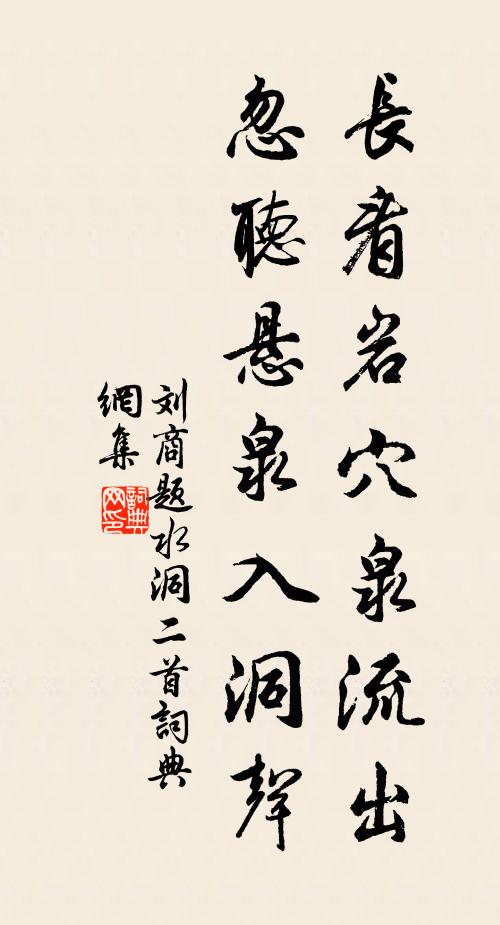 長看岩穴泉流出
忽聽悬泉入洞聲
刘商題水洞二首詞典
網集
詞典网印